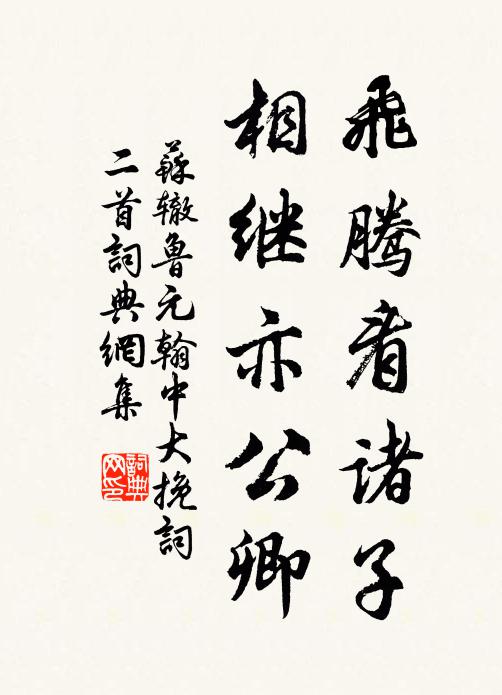 飛騰看诸子
相继亦公卿
蘇辙魯元翰中大挽詞
二首詞典網集
詞典
网印